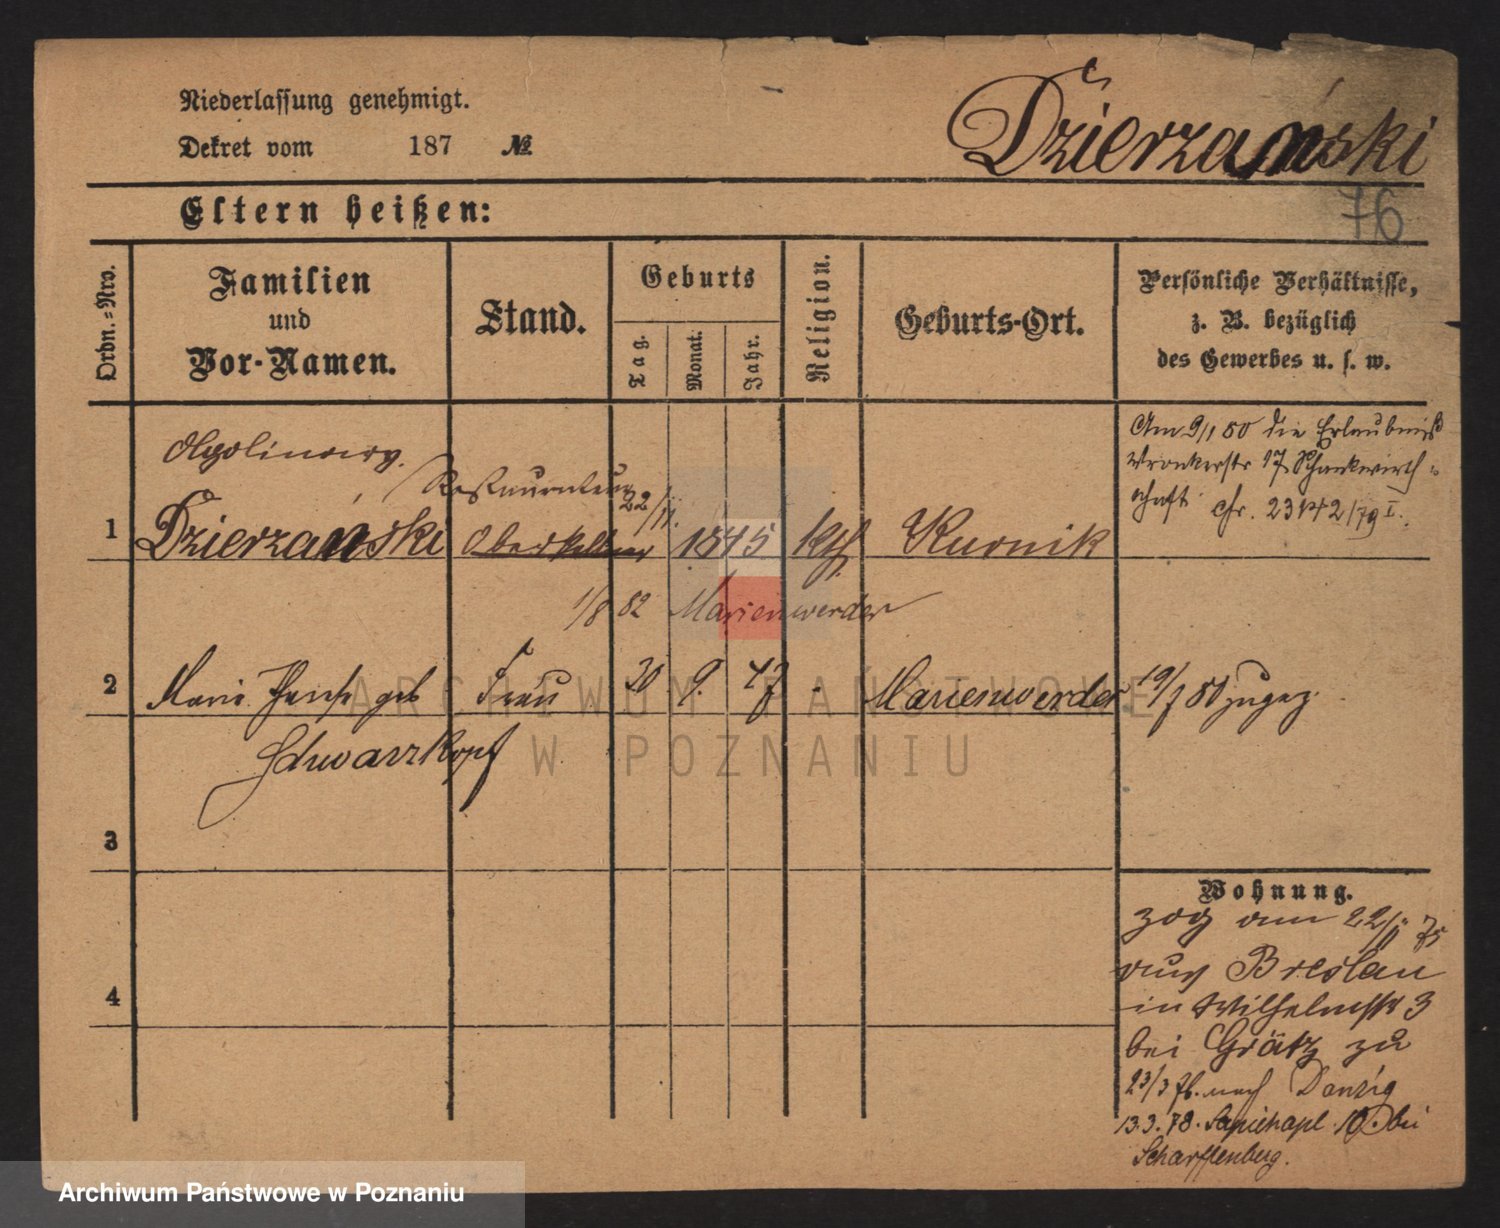 Niederlassung genehmigt.
Dekret vom 187 №
Dzierzański
76
Eltern heißen:
Ordn.-Nro.
Familien
und
Vor-Namen.
Stand.
Geburts
Tag.
Monat.
Jahr.
Religion.
Geburts-Ort.
Persönliche Verhältnisse,
z. B. bezüglich
des Gewerbes u. s. w.
Am 9/1 80 die Erlaubniß
Wronkerstr 17 Schankwirth-
schaft
Apolinary.
Restaurateur
1 Dzierzański Oberkellner 22/11. 1845 kth Kurnik
1/8 82 Marienwerder
2 Marie geb Frau 30 9. 47 Marienwerder 19/7 80 zugez.
Schwarzkopf
3
4
Wohnung.
zog am 22/11 75
aus Breslau
in Wilhelmstr 3
bei Grätz zu
23/3 76. nach Danzig
13.3.78. Sapiehapl. 10 bei
Scharffenberg.
ARCHIWUM PAŃSTWOWE
W POZNANIU
Archiwum Państwowe w Poznaniu